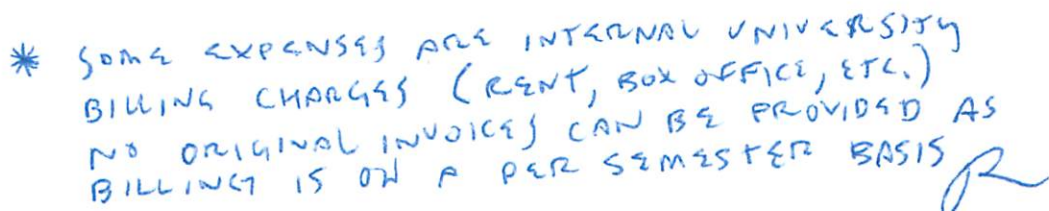 * SOME EXPENSES ARE INTERNAL UNIVERSITY
BILLING CHARGES (RENT, BOX OFFICE, ETC.)
NO ORIGINAL INVOICES CAN BE PROVIDED AS
BILLING IS ON A PER SEMESTER BASIS